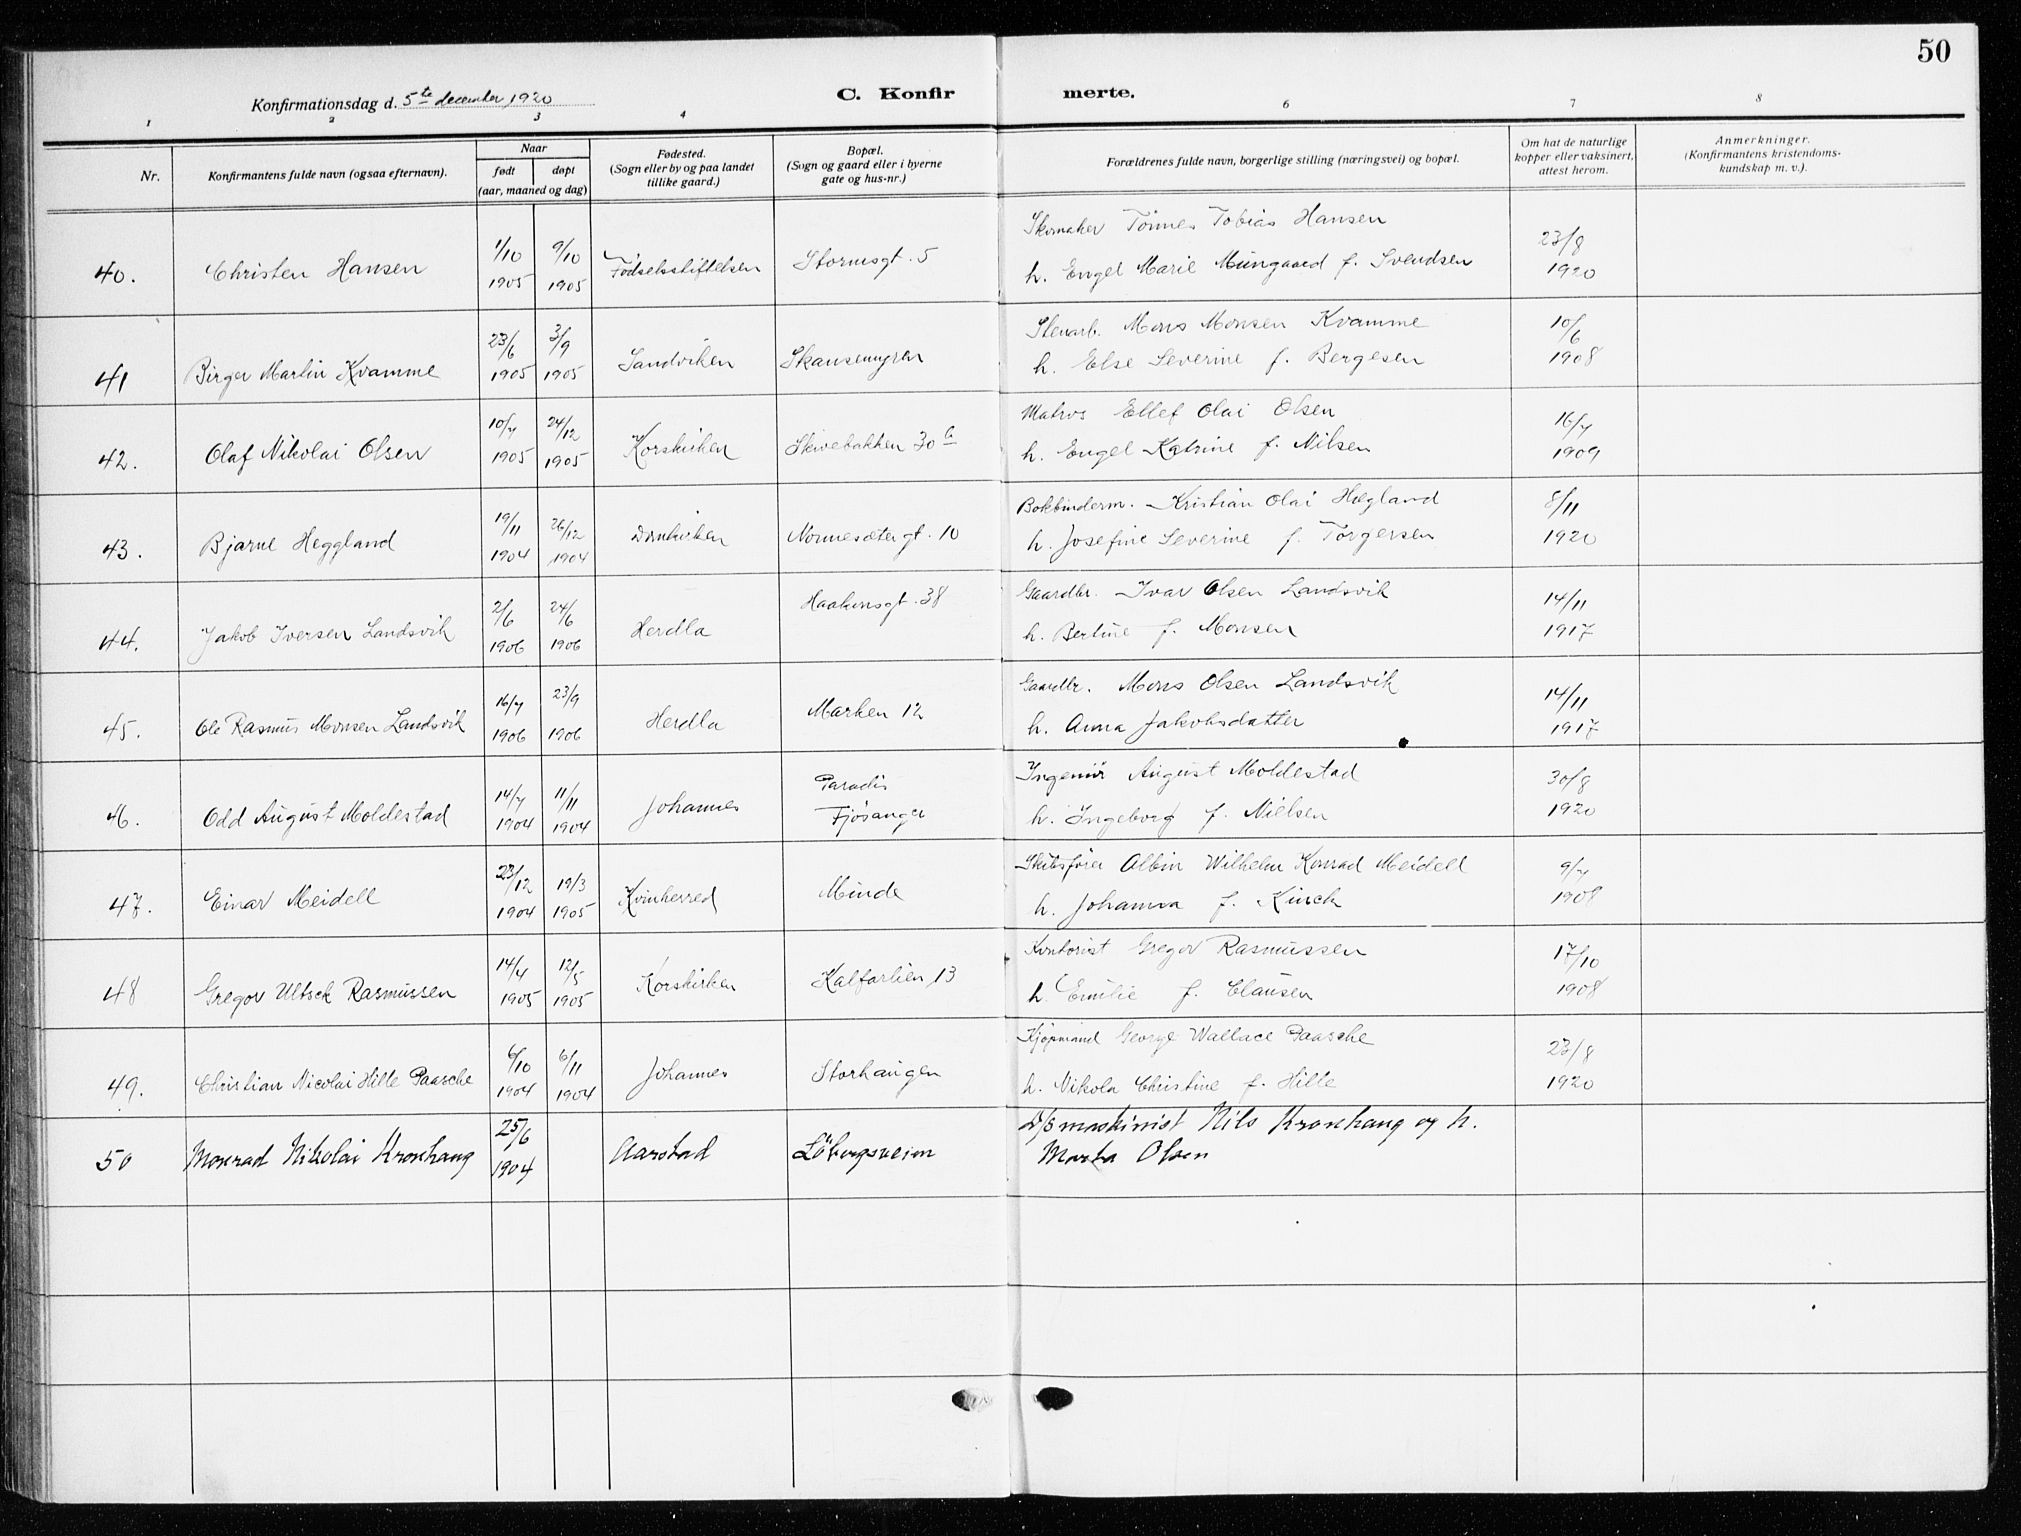 50
Konfirmationsdag d. 5te december 1920
C. Konfirmerte.
1 2 3 4 6 7 8
Nr.
Konfirmantens fulde navn (ogsaa efternavn).
Naar
født døpt
(aar, maaned og dag)
Fødested.
(Sogn eller by og paa landet
tillike gaard.)
Bopæl.
(Sogn og gaard eller i byerne
gate og hus-nr.)
Forældrenes fulde navn, borgerlige stilling (næringsvei) og bopæl.
Om hat de naturlige
kopper eller vaksinert,
attest herom.
Anmerkninger.
(Konfirmantens kristendoms-
kundskap m. v.).
40. Christen Hansen
1/10 1905
9/10 1905
Fødselsstiftelsen
Stormsgt. 5
Skomaker Tönnes Tobias Hansen
h. Engel Marie Mungaard f. Svendsen
23/8 1920
41 Birger Martin Kvamme
23/6 1905
3/9 1905
Sandviken
Skansemyren
Stenarb. Mons Monsen Kvamme
h. Else Severine f. Bergesen
10/6 1908
42. Olaf Nikolai Olsen
10/7 1905
24/12 1905
Korskirken
Skivebakken 30 b
Matros Ellef Olai Olsen
h. Engel Katrine f. Nilsen
16/7 1909
43. Bjarne Heggland
19/11 1904
26/12 1904
Domkirken
Nonnesætergt. 10
Bokbinderm. Kristian Olai Hegland
h. Josefine Severine f. Torgersen
8/11 1920
44. Jakob Iversen Landsvik
2/6 1906
24/6 1906
Herdla
Haakonsgt. 38
Gaardbr. Ivar Olsen Landsvik
h. Bertine f. Monsen
14/11 1917
45. Ole Rasmus Monsen Landsvik
16/7 1906
23/9 1906
Herdla
Marken 12
Gaardbr. Mons Olsen Landsvik
h. Anna Jakobsdatter
14/11 1917
46. Odd August Moldestad
14/7 1904
11/11 1904
Johannes
Paradis
Fjösanger
Ingeniör August Moldestad
h. Ingeborg f. Nielsen
30/8 1920
47. Einar Meidell
23/12 1904
19/3 1905
Kvinherred
Minde
Skibsfører Albin Wilhelm Konrad Meidell
h. Johanna f. Kinck
9/7 1908
48 Gregor Ultsck Rasmussen
14/4 1905
12/5 1905
Korskirken
Kalfarlien 13
Kontorist Gregor Rasmussen
h. Emilie f. Clausen
17/10 1908
49. Christian Nicolai Hille Paasche
6/10 1904
6/11 1904
Johannes
Storhaugen
Kjøpmand George Wallace Paasche
h. Nikola Christine f. Hille
23/8 1920
50 Monrad Nikolai Kronhaug
25/6 1904
Aarstad
Löbergsveien
D/S maskinist Nils Kronhaug og h.
Marta Olsen